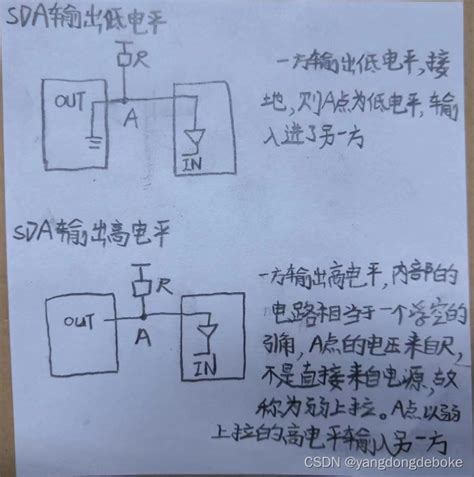 SDA输出低电平
R
OUT
A
IN
一方输出低电平,接
地,则A点为低电平,输
入进了另一方
SDA输出高电平
R
OUT
A
IN
一方输出高电平,内部的
电路相当于一个悬空的
引角,A点的电压来自R,
不是直接来自电源,故
称为弱上拉。A点以弱
上拉的高电平输入另一方
CSDN @yangdongdeboke